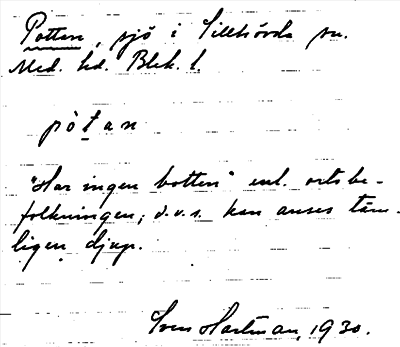 Potten, sjö i Tillhövda sn.
Med. hd. Blek. l.
pòtan
"Har ingen botten" enl. ortsbe-
folkningen; d.v.s. kan anses täm-
ligen djup.
Sven Hartman, 1930.